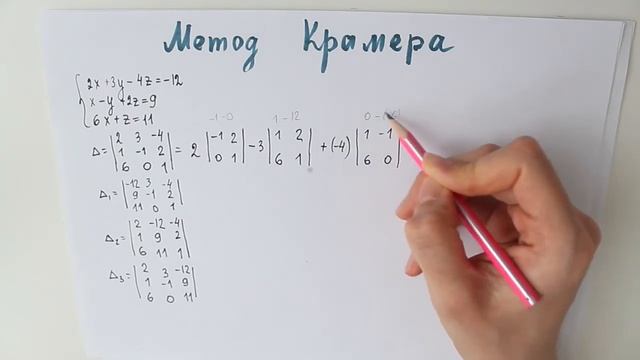 Метод Крамера
2x+3y-4z=-12
x-y+2z=9
6x+z=11
-1-0 1-12 0-
Δ= |2 3 -4| = 2 |-1 2| -3 |1 2| +(-4) |1 -1|
|1 -1 2| |0 1| |6 1| |6 0|
|6 0 1|
Δ₁= |-12 3 -4|
|9 -1 2|
|11 0 1|
Δ₂= |2 -12 -4|
|1 9 2|
|6 11 1|
Δ₃= |2 3 -12|
|1 -1 9|
|6 0 11|